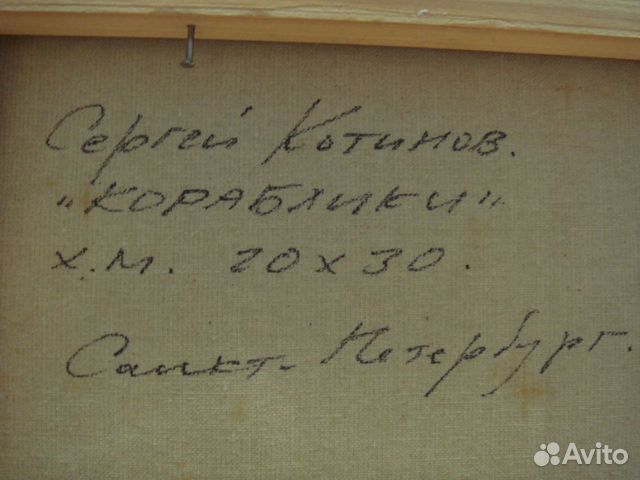 Сергей Котинов.
"КОРАБЛИКИ"
Х.М. 20х30.
Санкт-Петербург.
Avito